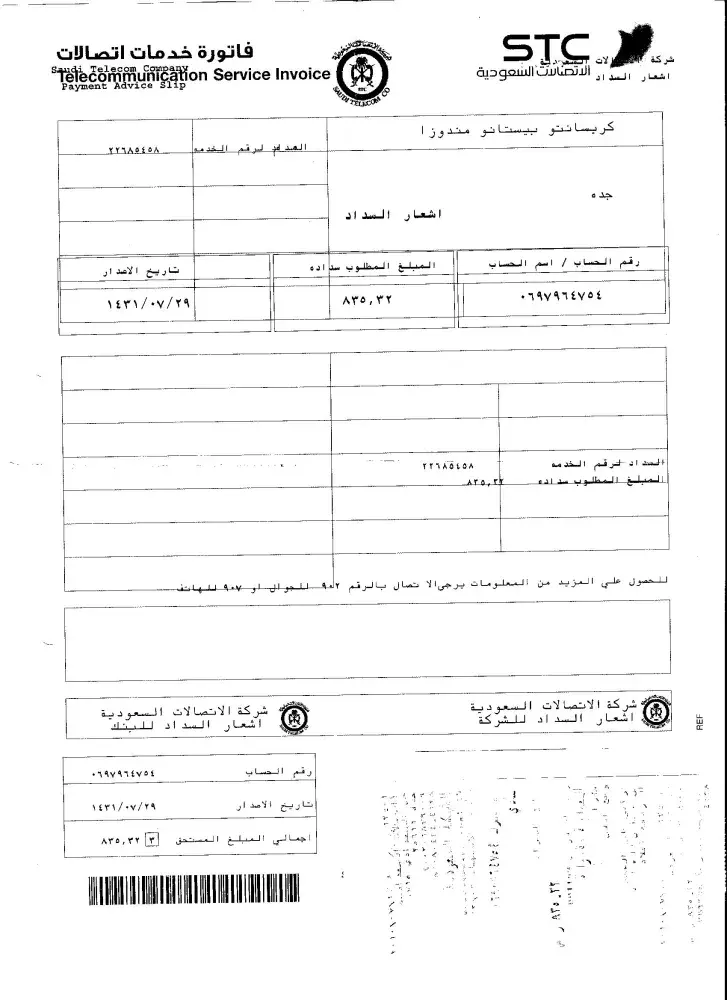 فاتورة خدمات اتصالات
Saudi Telecom Company
Telecommunication Service Invoice
Payment Advice Slip
STC
الاتصالات السعودية
شركة الاتصالات السعودية
اشعار السداد
كريسانتو بيستانو مندوزا
السداد لرقم الخدمه ٢٢٦٨٥٤٥٨
جده
اشعار السداد
رقم الحساب / اسم الحساب
المبلغ المطلوب سداده
تاريخ الاصدار
٠٦٩٧٩٦٤٧٥٤
٨٣٥,٣٢
١٤٣١/٠٧/٢٩
السداد لرقم الخدمه ٢٢٦٨٥٤٥٨
المبلغ المطلوب سداده ٨٣٥,٣٢
للحصول علي المزيد من المعلومات يرجى الاتصال بالرقم ٩٠٢ للجوال او ٩٠٧ للهاتف
شركة الاتصالات السعودية
اشعار السداد للشركة
شركة الاتصالات السعودية
اشعار السداد للبنك
REF
رقم الحساب ٠٦٩٧٩٦٤٧٥٤
تاريخ الاصدار ١٤٣١/٠٧/٢٩
اجمالي المبلغ المستحق ٣ ٨٣٥,٣٢